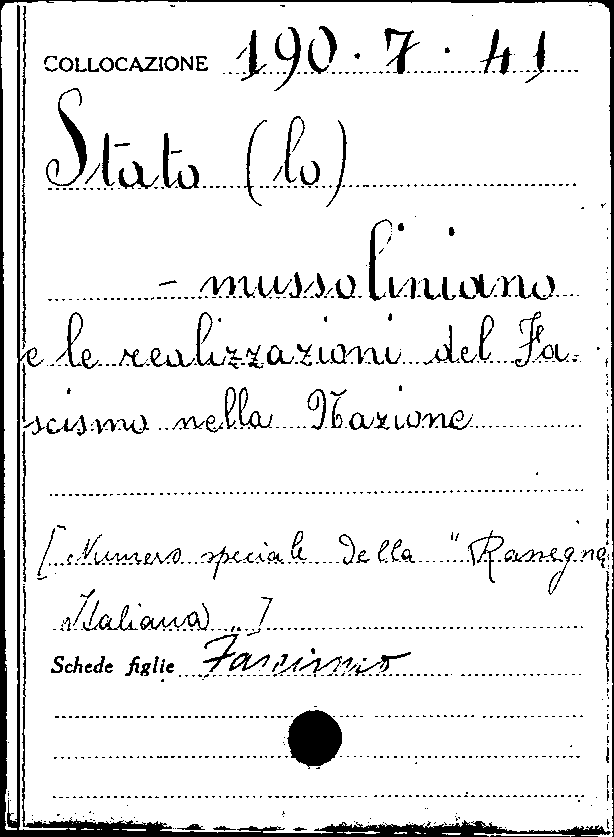 COLLOCAZIONE 190.7.41
Stato (lo)
- mussoliniano
e le realizzazioni del Fa-
scismo nella Nazione
[Numero speciale della "Rassegna
Italiana"]
Schede figlie Fascismo